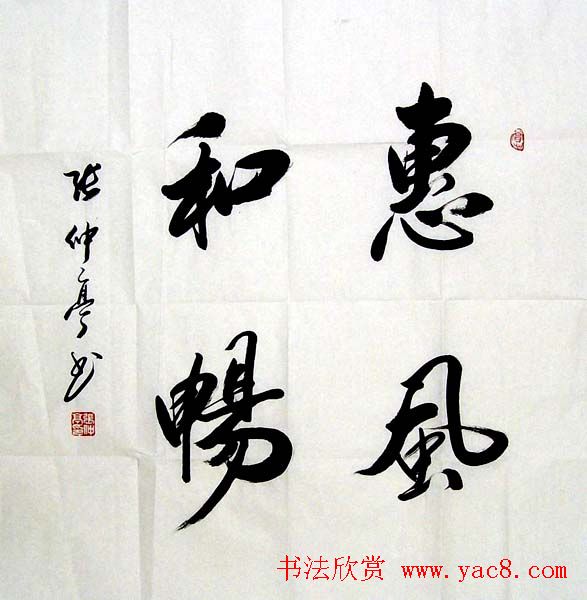 惠風
和暢
张仲亭书
书法欣赏 www.yac8.com